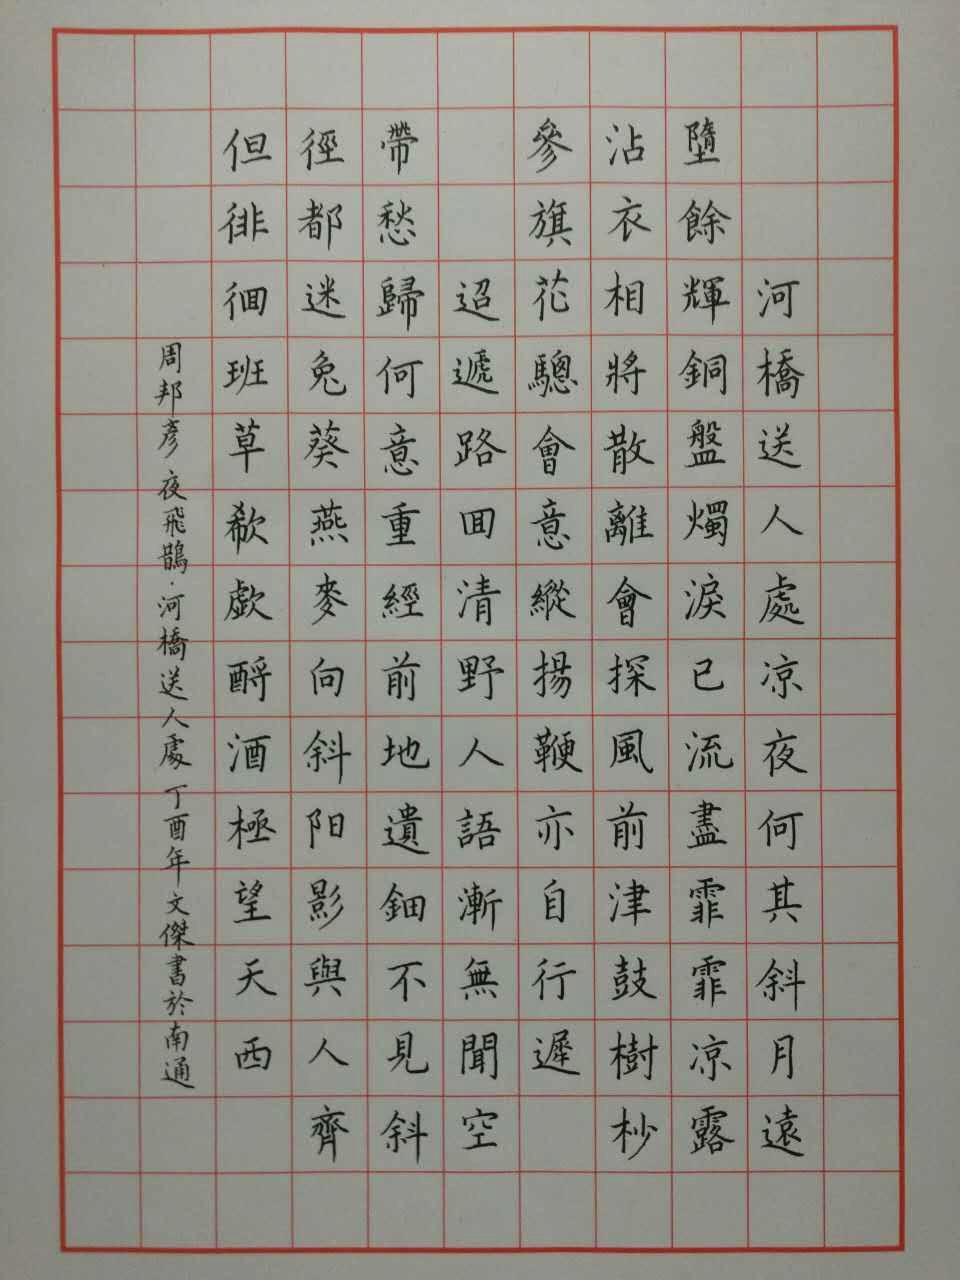 河橋送人處凉夜何其斜月遠
墮餘輝銅盤燭淚已流盡霏霏凉露
沾衣相將散離會探風前津鼓樹杪
參旗花驄會意縱揚鞭亦自行遲
迢遞路回清野人語漸無聞空
帶愁歸何意重經前地遺鈿不見斜
徑都迷兔葵燕麥向斜阳影與人齊
但徘徊班草欷歔酹酒極望天西
周邦彥夜飛鵲·河橋送人處丁酉年文傑書於南通